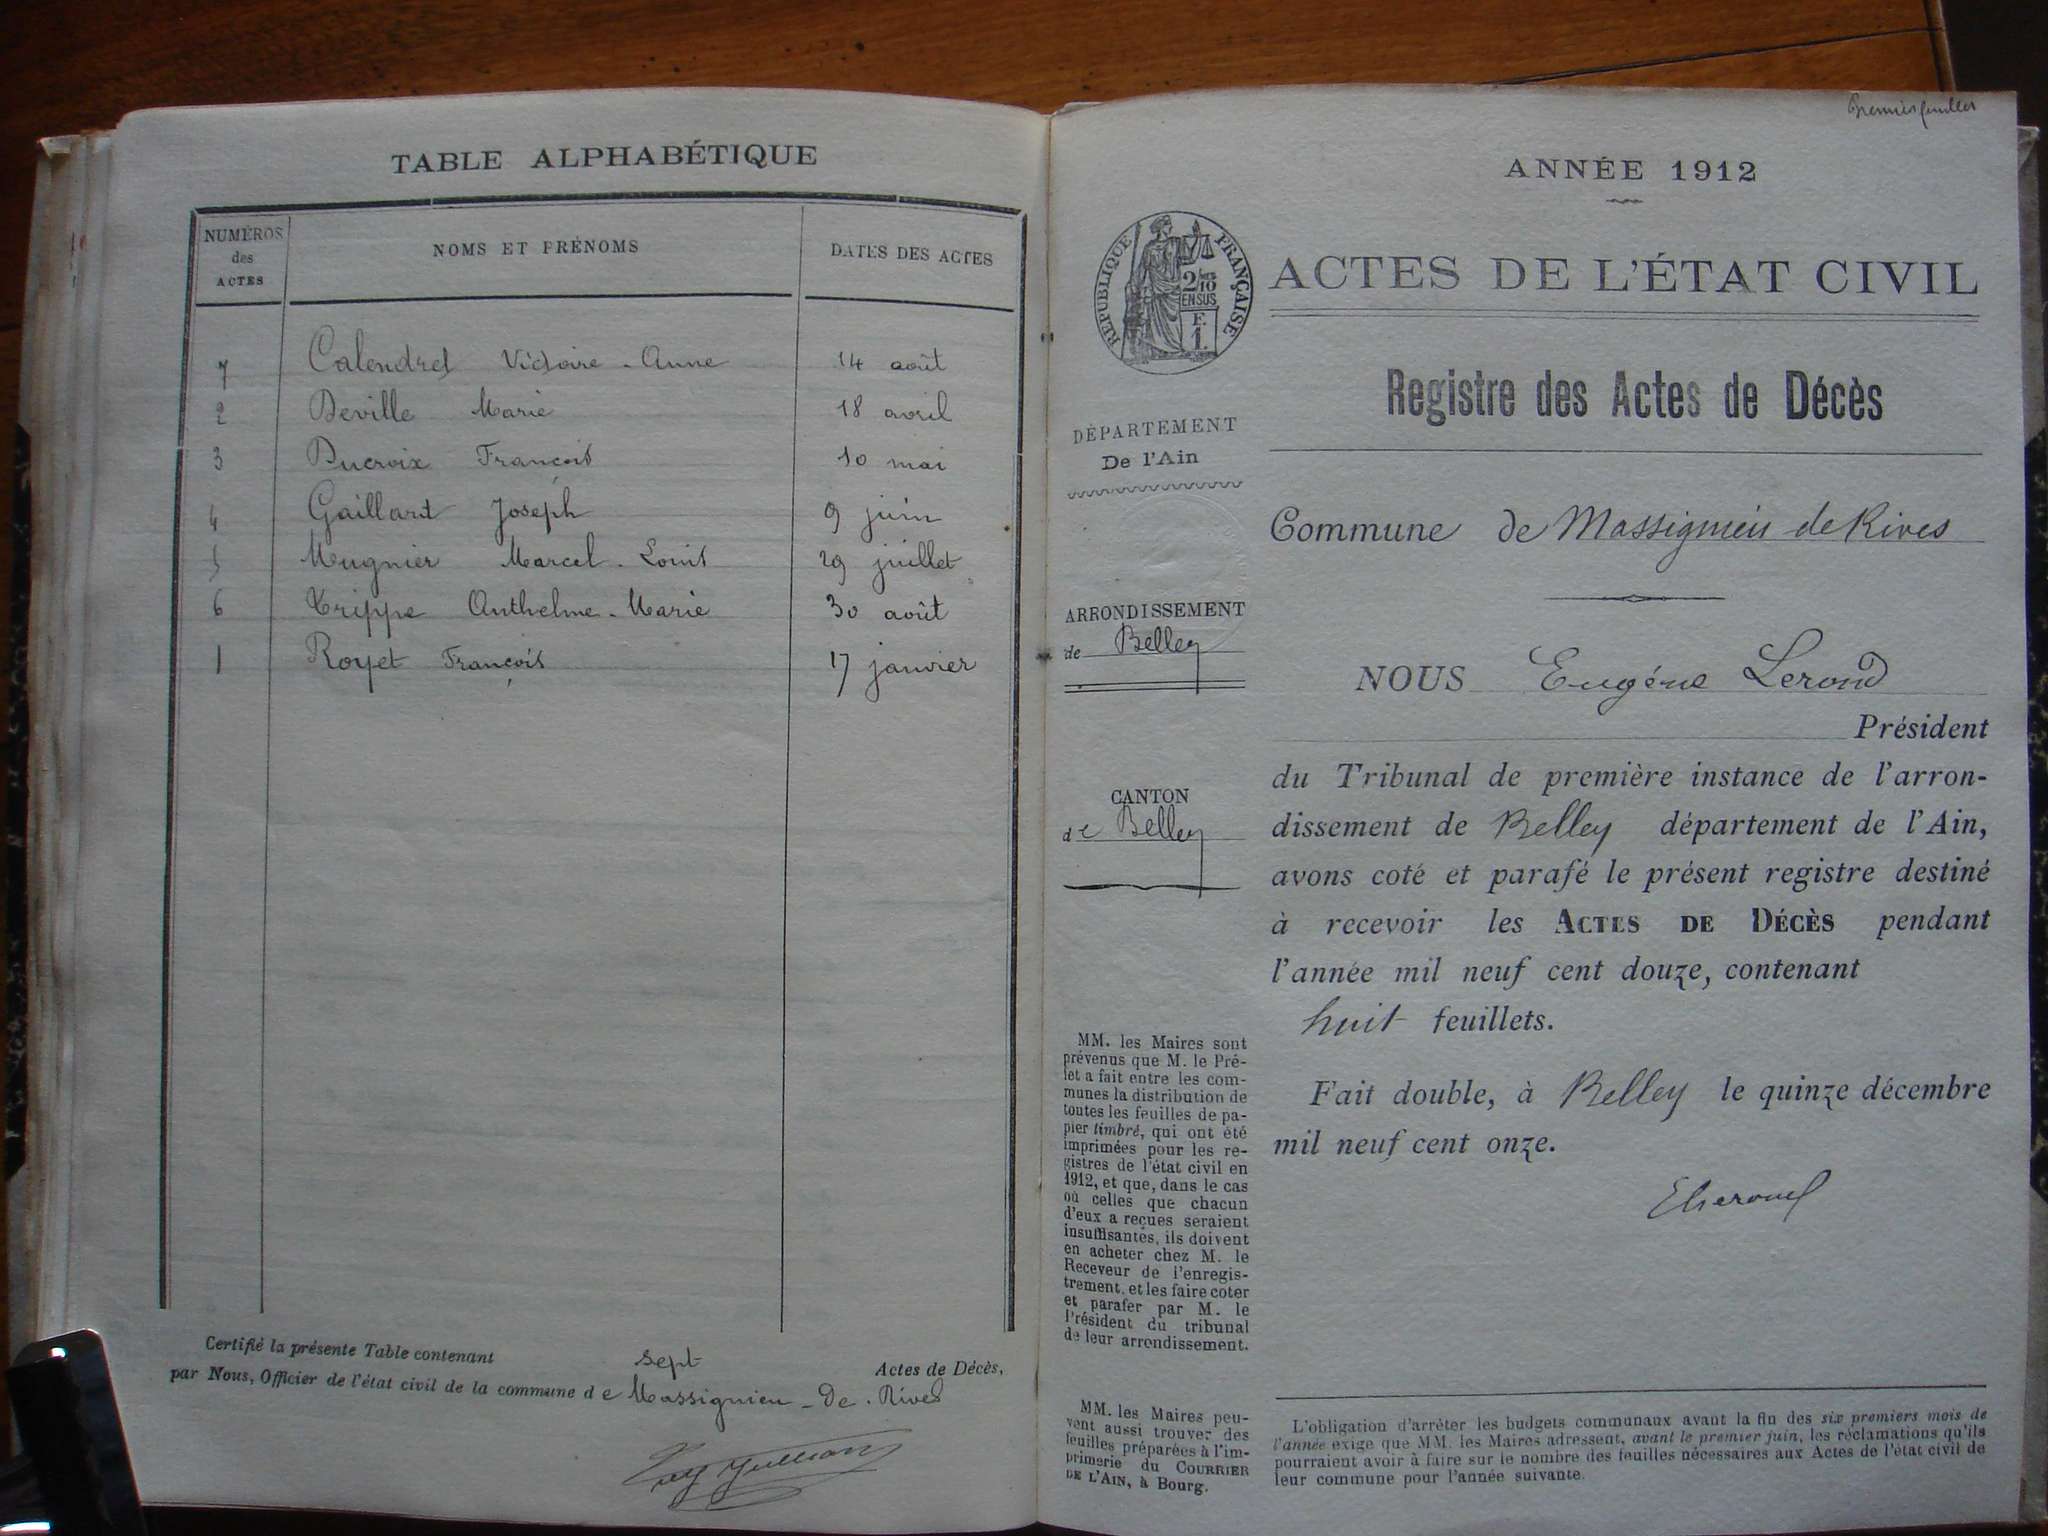 TABLE ALPHABÉTIQUE
NUMÉROS des ACTES
NOMS ET PRÉNOMS
DATES DES ACTES
7 Calendret Victoire-Anne 14 août
2 Deville Marie 18 avril
3 Ducroix François 10 mai
4 Gaillard Joseph 9 juin
5 Mugnier Marcel-Louis 29 juillet
6 Trippe Anthelme-Marie 30 août
1 Royet François 17 janvier
Certifié la présente Table contenant sept Actes de Décès,
par Nous, Officier de l'état civil de la commune de Massignieu-de-Rives
Premier feuillet
ANNÉE 1912
RÉPUBLIQUE FRANÇAISE
2/10
EN SUS
F.
1.
ACTES DE L'ÉTAT CIVIL
Registre des Actes de Décès
DÉPARTEMENT
De l'Ain
Commune de Massignieu de Rives
ARRONDISSEMENT
de Belley
CANTON
de Belley
NOUS Eugène Lerond
Président
du Tribunal de première instance de l'arron-
dissement de Belley département de l'Ain,
avons coté et parafé le présent registre destiné
à recevoir les ACTES DE DÉCÈS pendant
l'année mil neuf cent douze, contenant
huit feuillets.
Fait double, à Belley le quinze décembre
mil neuf cent onze.
MM. les Maires sont
prévenus que M. le Pré-
fet a fait entre les com-
munes la distribution de
toutes les feuilles de pa-
pier timbré, qui ont été
imprimées pour les re-
gistres de l'état civil en
1912, et que, dans le cas
où celles que chacun
d'eux a reçues seraient
insuffisantes, ils doivent
en acheter chez M. le
Receveur de l'enregis-
trement, et les faire coter
et parafer par M. le
Président du tribunal
de leur arrondissement.
MM. les Maires peu-
vent aussi trouver des
feuilles préparées à l'im-
primerie du COURRIER
DE L'AIN, à Bourg.
L'obligation d'arrêter les budgets communaux avant la fin des six premiers mois de
l'année exige que MM. les Maires adressent, avant le premier juin, les réclamations qu'ils
pourraient avoir à faire sur le nombre des feuilles nécessaires aux Actes de l'état civil de
leur commune pour l'année suivante.